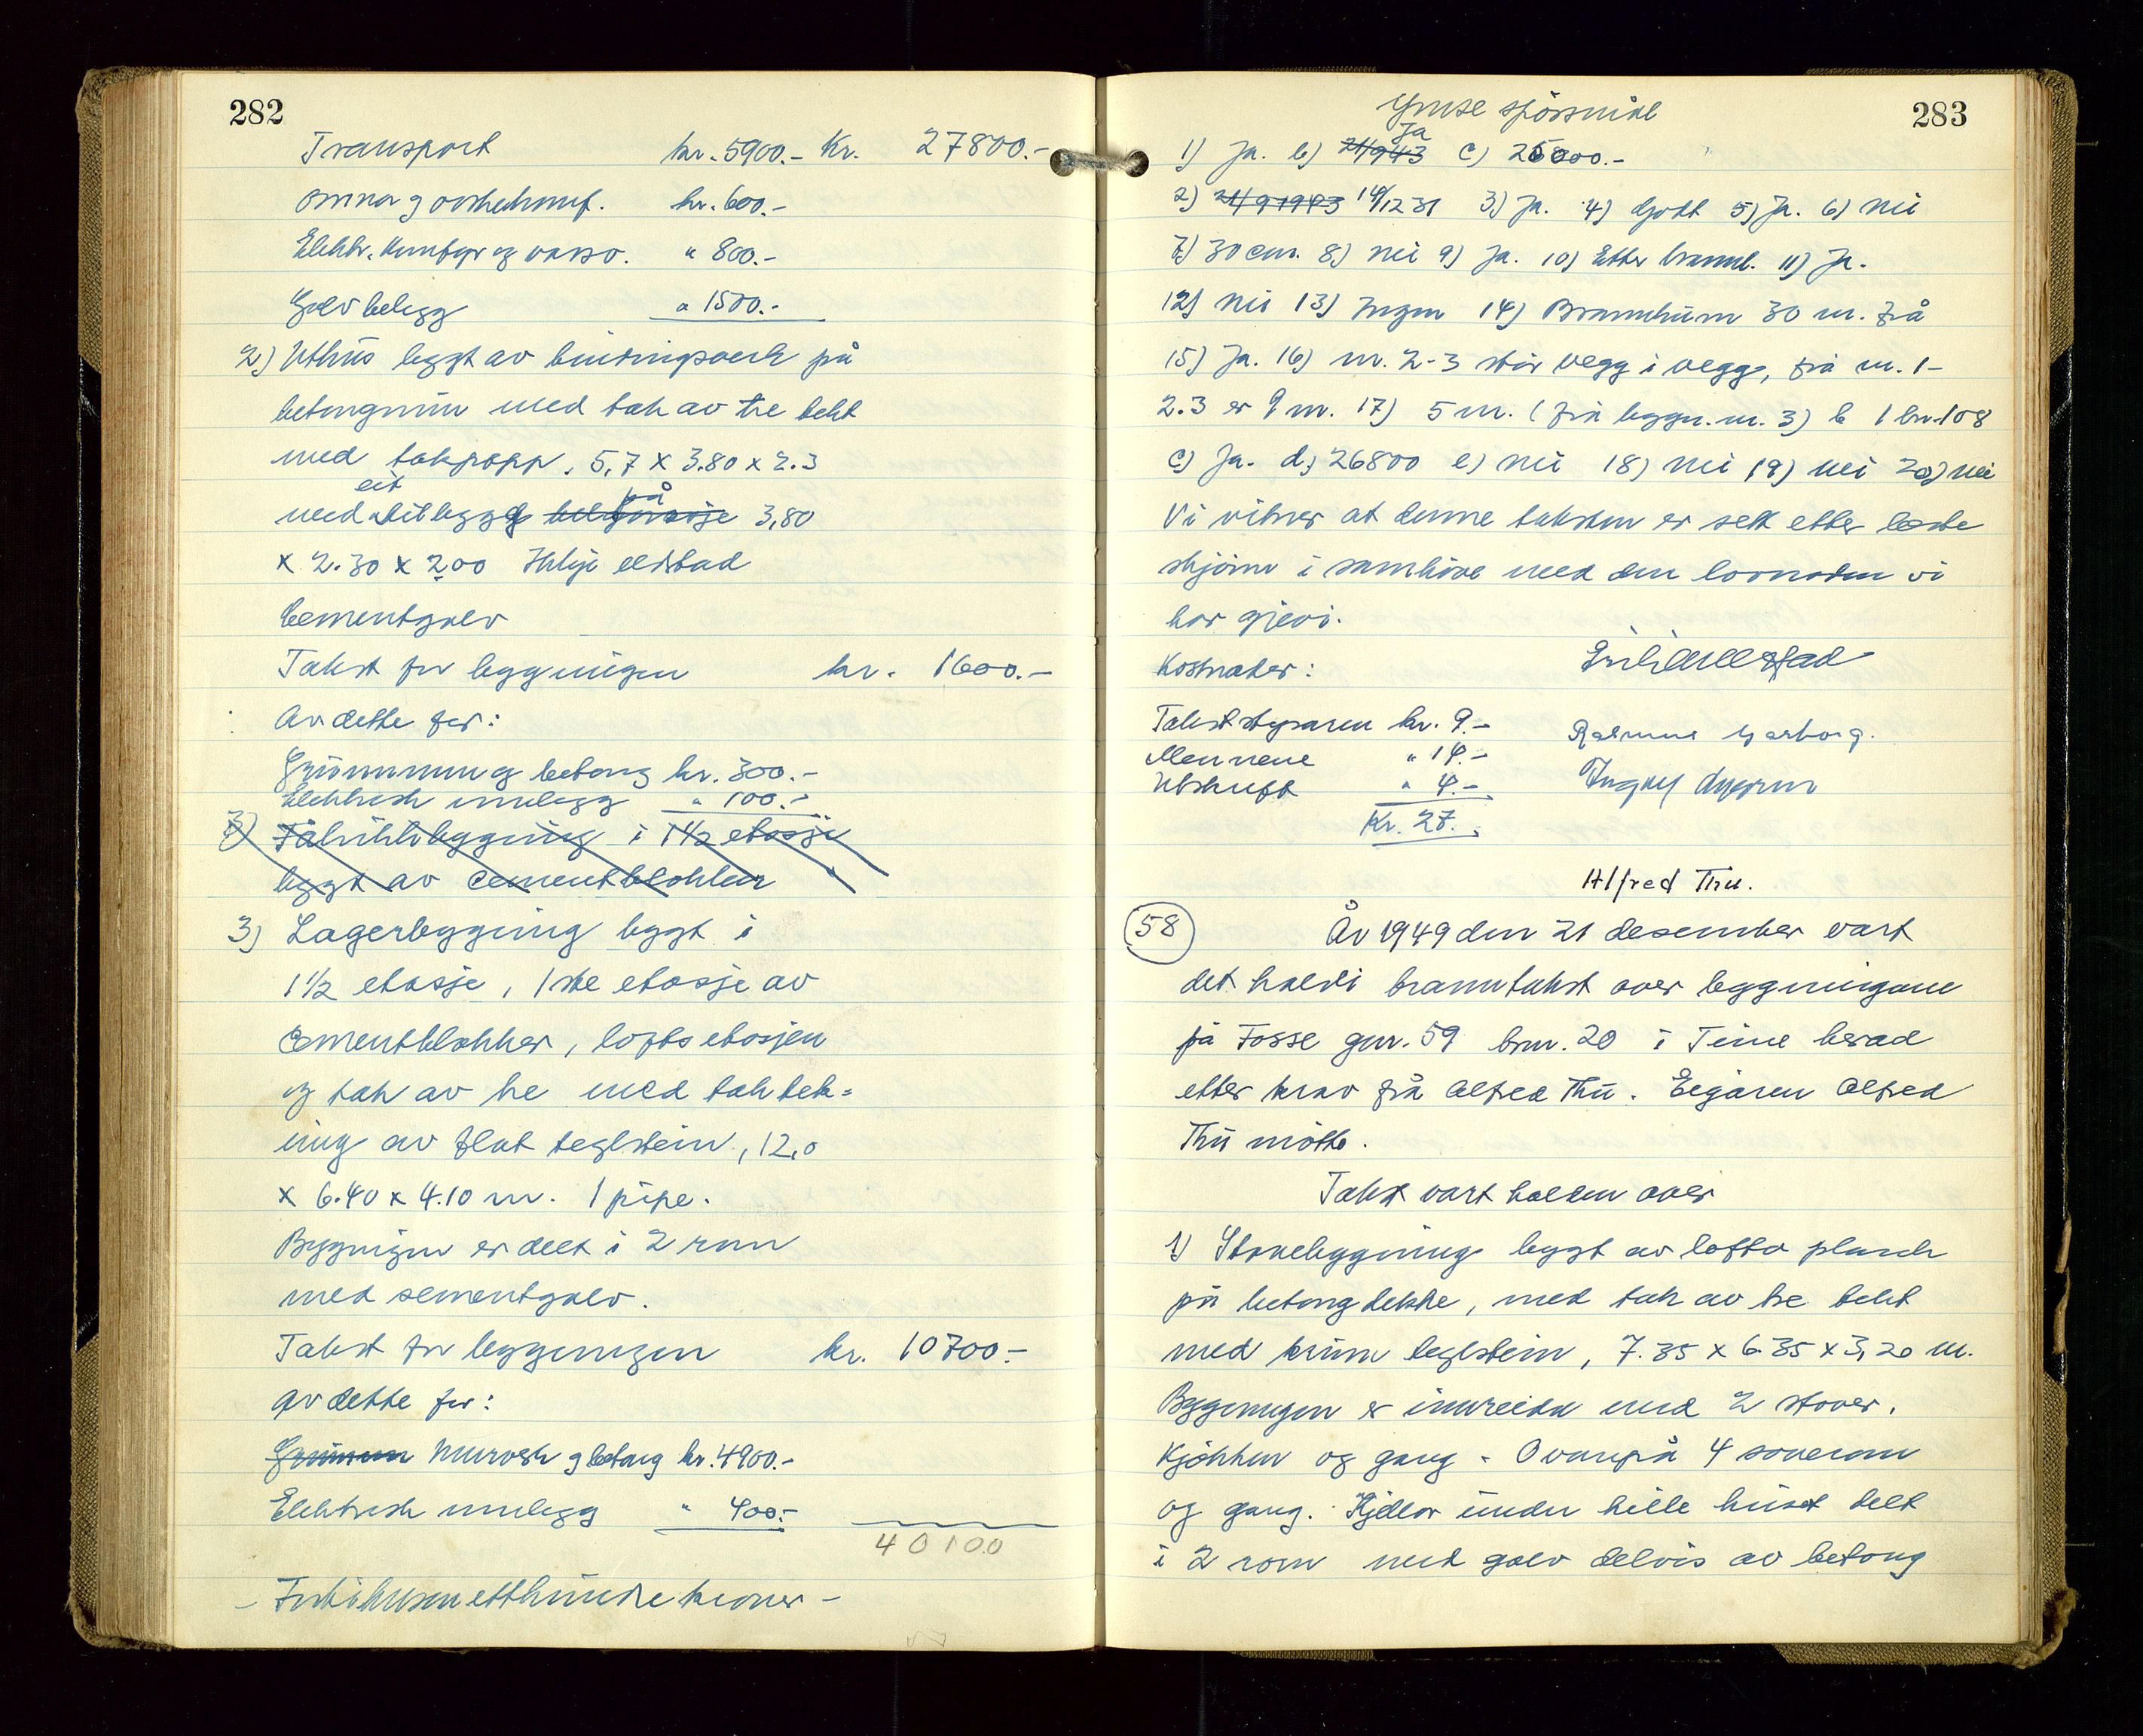 282
Transport kr. 5900.- Kr. 27800.-
omnar og kr. 600.-
Elektr. kumfyr og " 800.-
Golvbelegg " 1500.-
2) Uthus bygt av bindingsverk på
betongmur med tak av tre tekt
med takpapp. 5,7 x 3.80 x 2.3
eit på
med tilbygg 3,80
x 2.30 x 2.00 Ikkje eldstad
Cementgolv
Takst for bygningen kr. 1600.-
Av dette for:
Grunnmur og betong kr. 300.-
Elektrisk innlegg " 100.-
3) bygging i 1 1/2 etasje
bygt av cementblokker
3) Lagerbygning bygt i
1 1/2 etasje, 1ste etasje av
Cementblokker, loftsetasjen
og tak av tre med taktek=
ing av flat teglstein, 12,0
x 6.40 x 4.10 m. 1 pipe.
Bygningen er delt i 2 rom
med sementgolv.
Takst for bygningen kr. 10700.-
Av dette for:
Grunnmur Murverk og betong kr. 4900.-
Elektrisk innlegg " 400.-
40100
- Førtitusenetthundre kroner -
283
Ymse spörsmål
Ja
1) Ja. b) 21/943 c) 25000.-
2) 21/9 1943 14/12 31 3) Ja. 4) Godt 5) Ja. 6) Nei
7) 30 cm. 8) Nei 9) Ja. 10) Etter brannl. 11) Ja.
12) Nei 13) Ingen 14) Brannkum 30 m. frå
15) Ja. 16) nr. 2-3 står vegg i vegg, frå nr. 1-
2.3 er 9 m. 17) 5 m. (frå bygn. nr. 3) b 1 bnr. 108
c) Ja. d) 26800 e) nei 18) nei 19) nei 20) nei
Vi vitner at denne taksten er sett etter beste
skjønn i samhöve med den lovnaden vi
har gjevi.
Kostnader:
Takststyraren kr. 9.- Rasmus Garborg.
Mennene " 14.-
Utskrift " 4.-
Kr. 27.-
Alfred Thu.
58 År 1949 den 21 desember vart
det haldi branntakst over bygningane
på Fosse gnr. 59 bnr. 20 i Time herad
etter krav frå Alfred Thu. Eigaren Alfred
Thu mötte.
Takst vart halden over
1) Stovebygning bygt av lofta plank
på betongdekke, med tak av tre tekt
med krum teglstein, 7.35 x 6.35 x 3,20 m.
Bygningen er innreidd med 2 stover,
Kjökken og gang. Ovanpå 4 soverom
og gang. Kjellar under heile huset delt
i 2 rom med golv delvis av betong